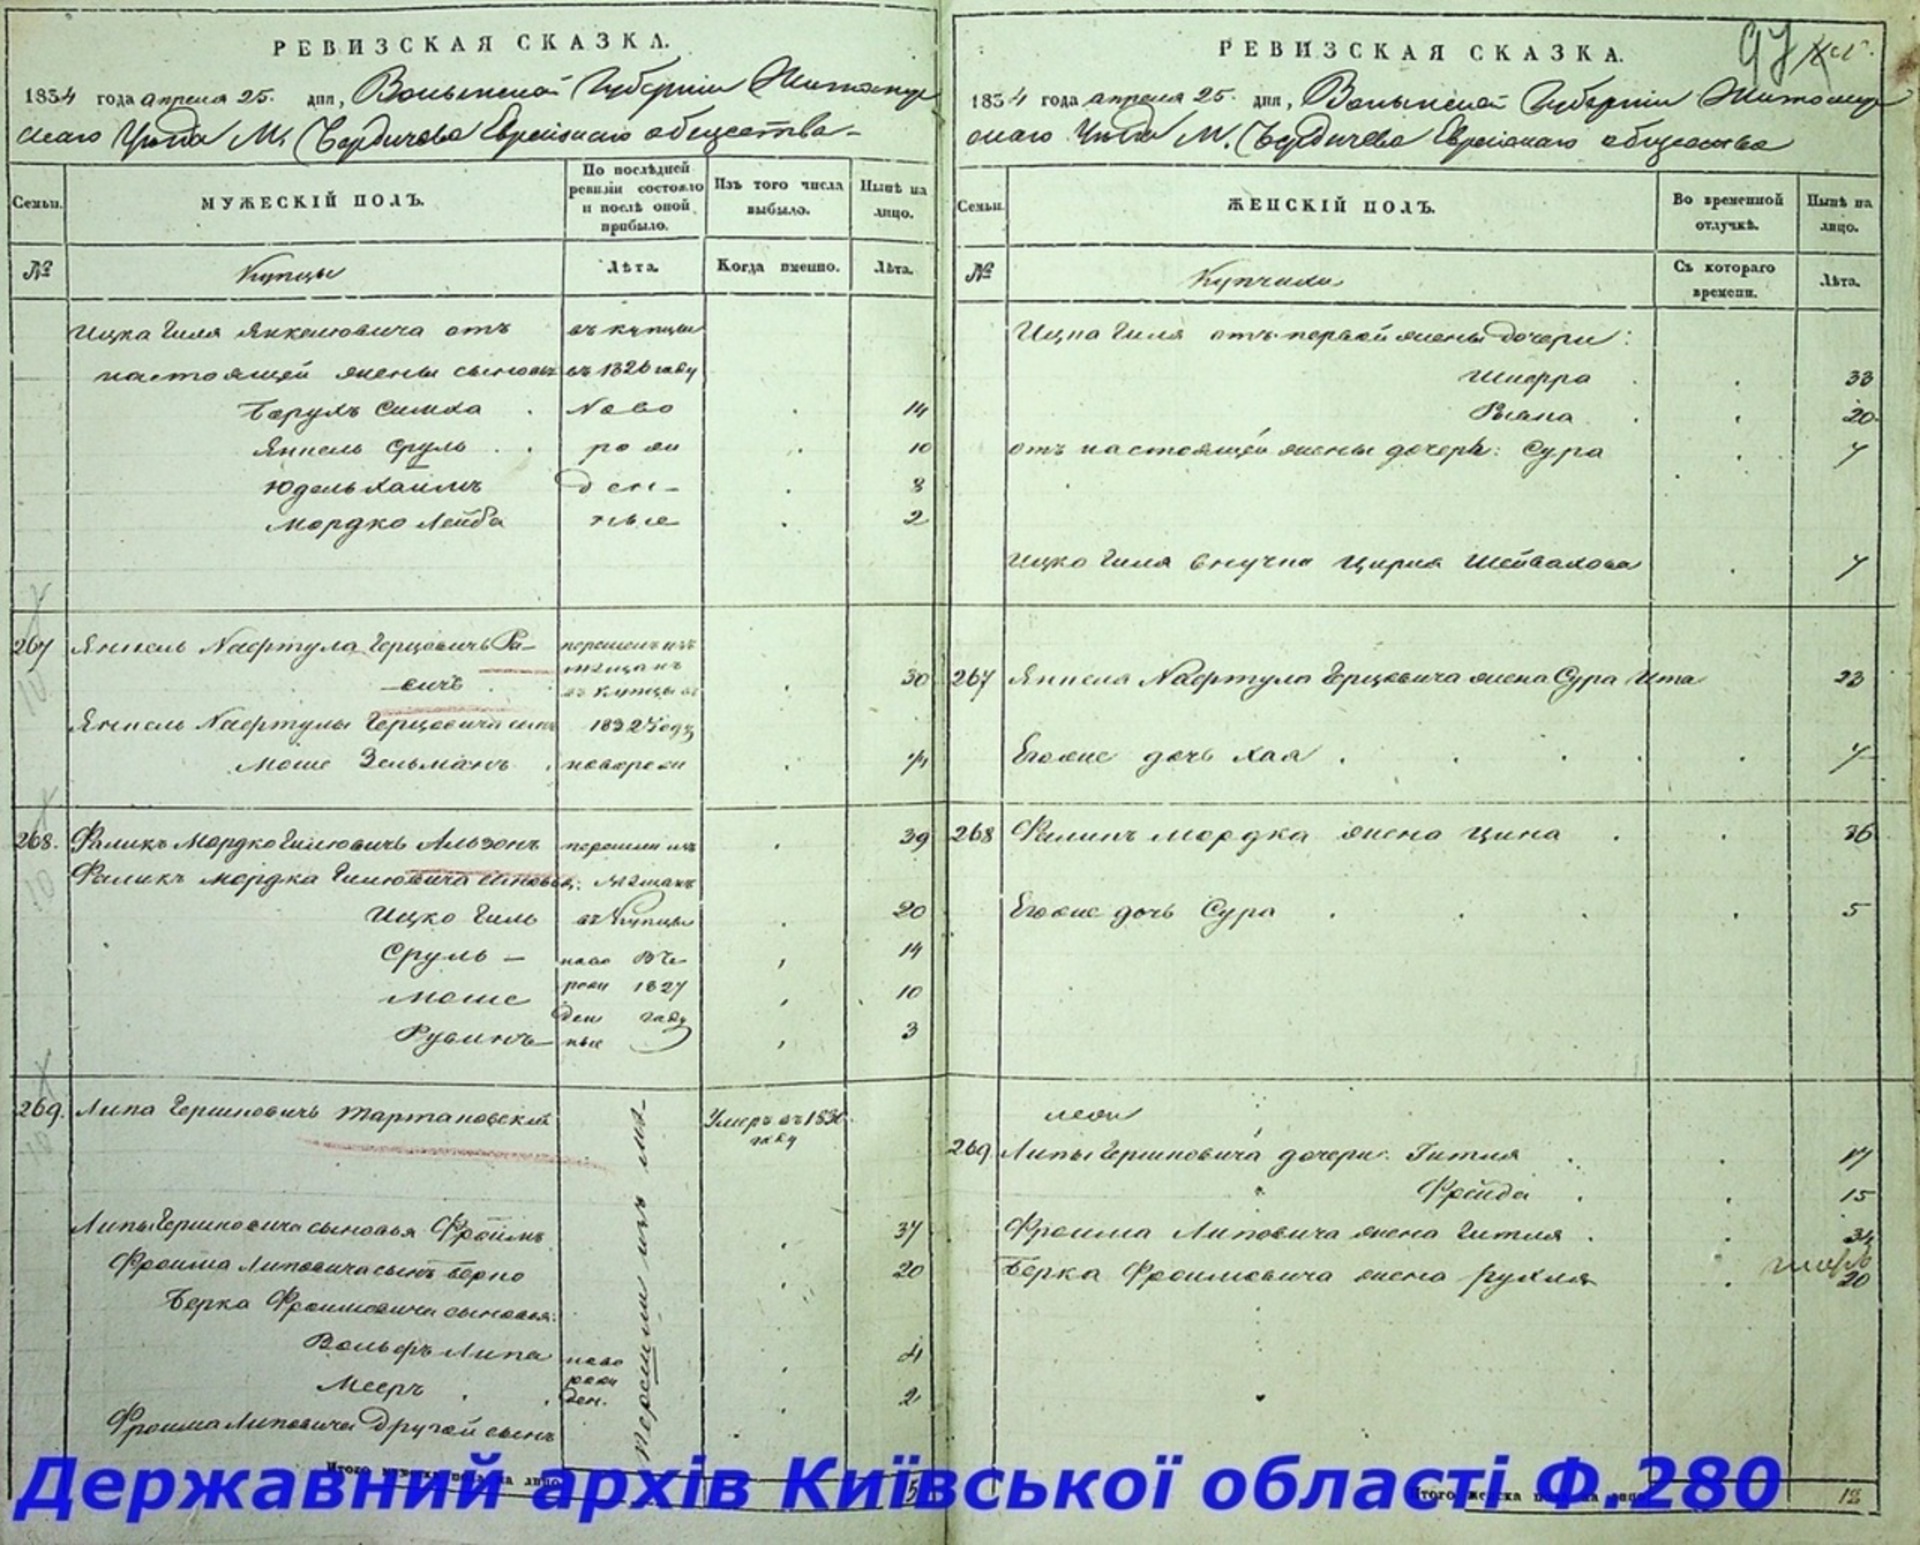 РЕВИЗСКАЯ СКАЗКА.
1834 года апреля 25. дня, Волынской Губернии Житомир
скаго Уезда М. Бердичева Еврейскаго общества
Семьи.
МУЖЕСКІЙ ПОЛЪ.
По послѣдней ревизіи состояло и послѣ оной прибыло.
Изъ того числа выбыло.
Нынѣ на лицо.
№
Купцы
Лѣта.
Когда именно.
Лѣта.
Ицка Гиля Янкелювича отъ въ купцы
настоящей жены сыновья въ 1826 году
Борухъ Симха ново 14
Янкель Сруль рож 10
Юдель Хаимъ ден 8
Мордко Лейба ные 2
267 Янкель Нафтула Герцовичъ Ра-
вичъ 30
перешелъ изъ
мещанъ
въ купцы въ
Янкель Нафтулы Герцовича сынъ 1832 году
Моше Зельманъ новорож
268. Фаликъ Мордко Гилювичъ Альзонъ перешли изъ 39
Фаликъ Мордка Гилювича сыновья: мещанъ
Ицко Гиль въ Купцы 20
Сруль 14
Моше 10
Рувинъ 3
ново въ
рож 1827
ден году
ные
269. Липа Гершковичъ Тартаковскій Умеръ въ 1830 году
перешли изъ ме-
Липы Гершковича сыновья Фроимъ 37
Фроима Липовича сынъ Берко 20
Берка Фроимовича сыновья:
Вольфъ Липа ново 4
Мееръ рож ден. 2
Фроима Липовича другой сынъ
РЕВИЗСКАЯ СКАЗКА.
97
1834 года апреля 25. дня, Волынской Губернии Житомир
скаго Уезда М. Бердичева Еврейскаго общества
Семьи.
ЖЕНСКІЙ ПОЛЪ.
Во временной отлучкѣ.
Нынѣ на лицо.
№
Купчихи
Съ котораго времени.
Лѣта.
Ицка Гиля отъ первой жены дочери:
Шперра 33
20
отъ настоящей жены дочерь: Сура 7
Ицко Гиля внучка Цирля Шейвахова 7
267 Янкеля Нафтула Герцовича жена Сура Ита 23
Егоже дочь Хая 7
268 Фаликъ Мордка жена Цина 36
Егоже дочь Сура 5
269 Липы Гершковича дочери: Гитля 17
Фрейда 15
Фроима Липовича жена Гитля 34
Берка Фроимовича жена Рухля 20
Державний архів Київської області Ф.280